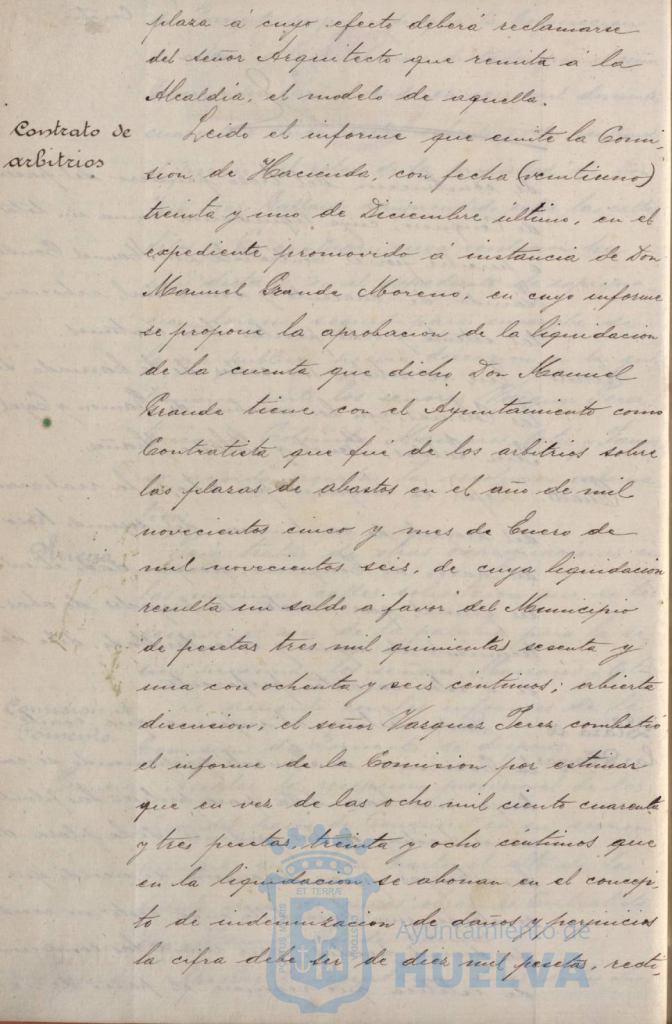 plaza á cuyo efecto deberá reclamarse
del señor Arquitecto que remita á la
Alcaldia, el modelo de aquella.
Contrato de
arbitrios
Leido el informe que emite la Comi-
sion de Hacienda, con fecha (veintiuno)
treinta y uno de Diciembre último, en el
expediente promovido á instancia de Don
Manuel Grande Moreno, en cuyo informe
se propone la aprobacion de la liquidacion
de la cuenta que dicho Don Manuel
Grande tiene con el Ayuntamiento como
Contratista que fué de los arbitrios sobre
las plazas de abastos en el año de mil
novecientos cinco y mes de Enero de
mil novecientos seis, de cuya liquidacion
resulta un saldo á favor del Municipio
de pesetas tres mil quinientas sesenta y
una con ochenta y seis céntimos; abierta
discusion, el señor Vazquez Perez combatió
el informe de la Comision por estimar
que en vez de las ocho mil ciento cuarenta
y tres pesetas, treinta y ocho céntimos que
en la liquidacion se abonan en el concep-
to de indemnizacion de daños y perjuicios
la cifra debe ser de diez mil pesetas, recti-
ET TERRÆ
Ayuntamiento de
HUELVA